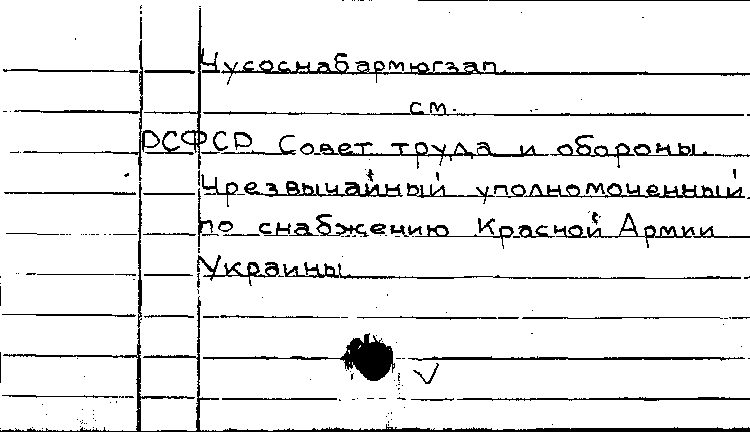 Чусоснабармюгзап
см.
РСФСР. Совет труда и обороны.
Чрезвычайный уполномоченный
по снабжению Красной Армии
Украины